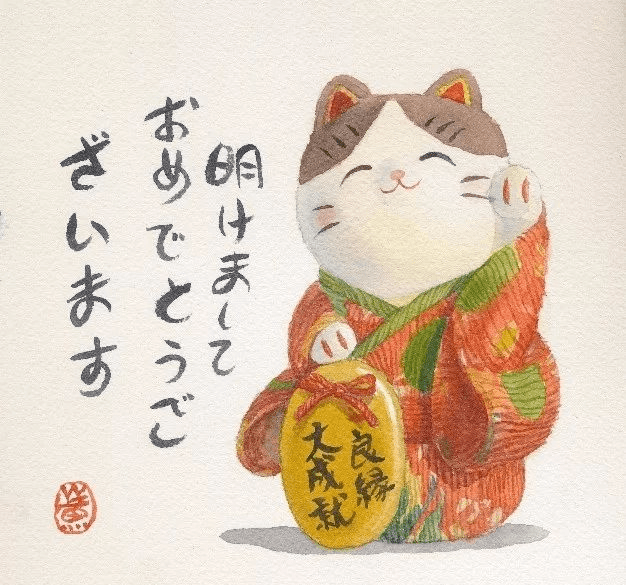 明けまして
おめでとうご
ざいます
良縁
大成就